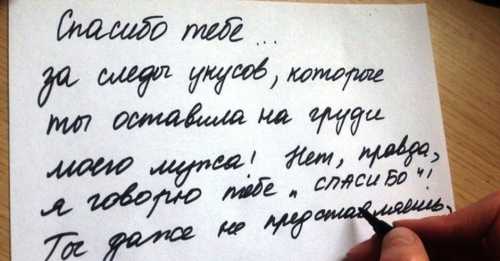 Спасибо тебе...
за следы укусов, которые
ты оставила на груди
моего мужа! Нет, правда,
я говорю тебе „СПАСИБО"!
Ты даже не представляешь,